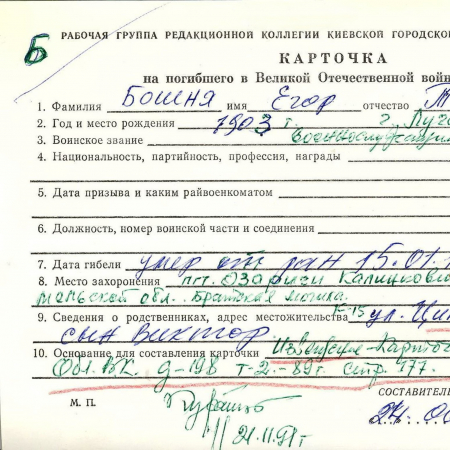 Б РАБОЧАЯ ГРУППА РЕДАКЦИОННОЙ КОЛЛЕГИИ КИЕВСКОЙ ГОРОДСКО
КАРТОЧКА
на погибшего в Великой Отечественной войн
1. Фамилия Бошня имя Егор отчество
2. Год и место рождения 1903 г. г. Луг
3. Воинское звание военнослужащи
4. Национальность, партийность, профессия, награды
5. Дата призыва и каким райвоенкоматом
6. Должность, номер воинской части и соединения
7. Дата гибели умер от ран 15.01.
8. Место захоронения пгт. Озаричи Калинкови
обл. Братская могила.
9. Сведения о родственниках, адрес местожительства К-15 ул.
сын Виктор
10. Основание для составления карточки Извещение-Карто
Обл.ВК. д-19В т-2.-89г. стр. 177.
СОСТАВИТЕЛ
М. П.
21.11.91г